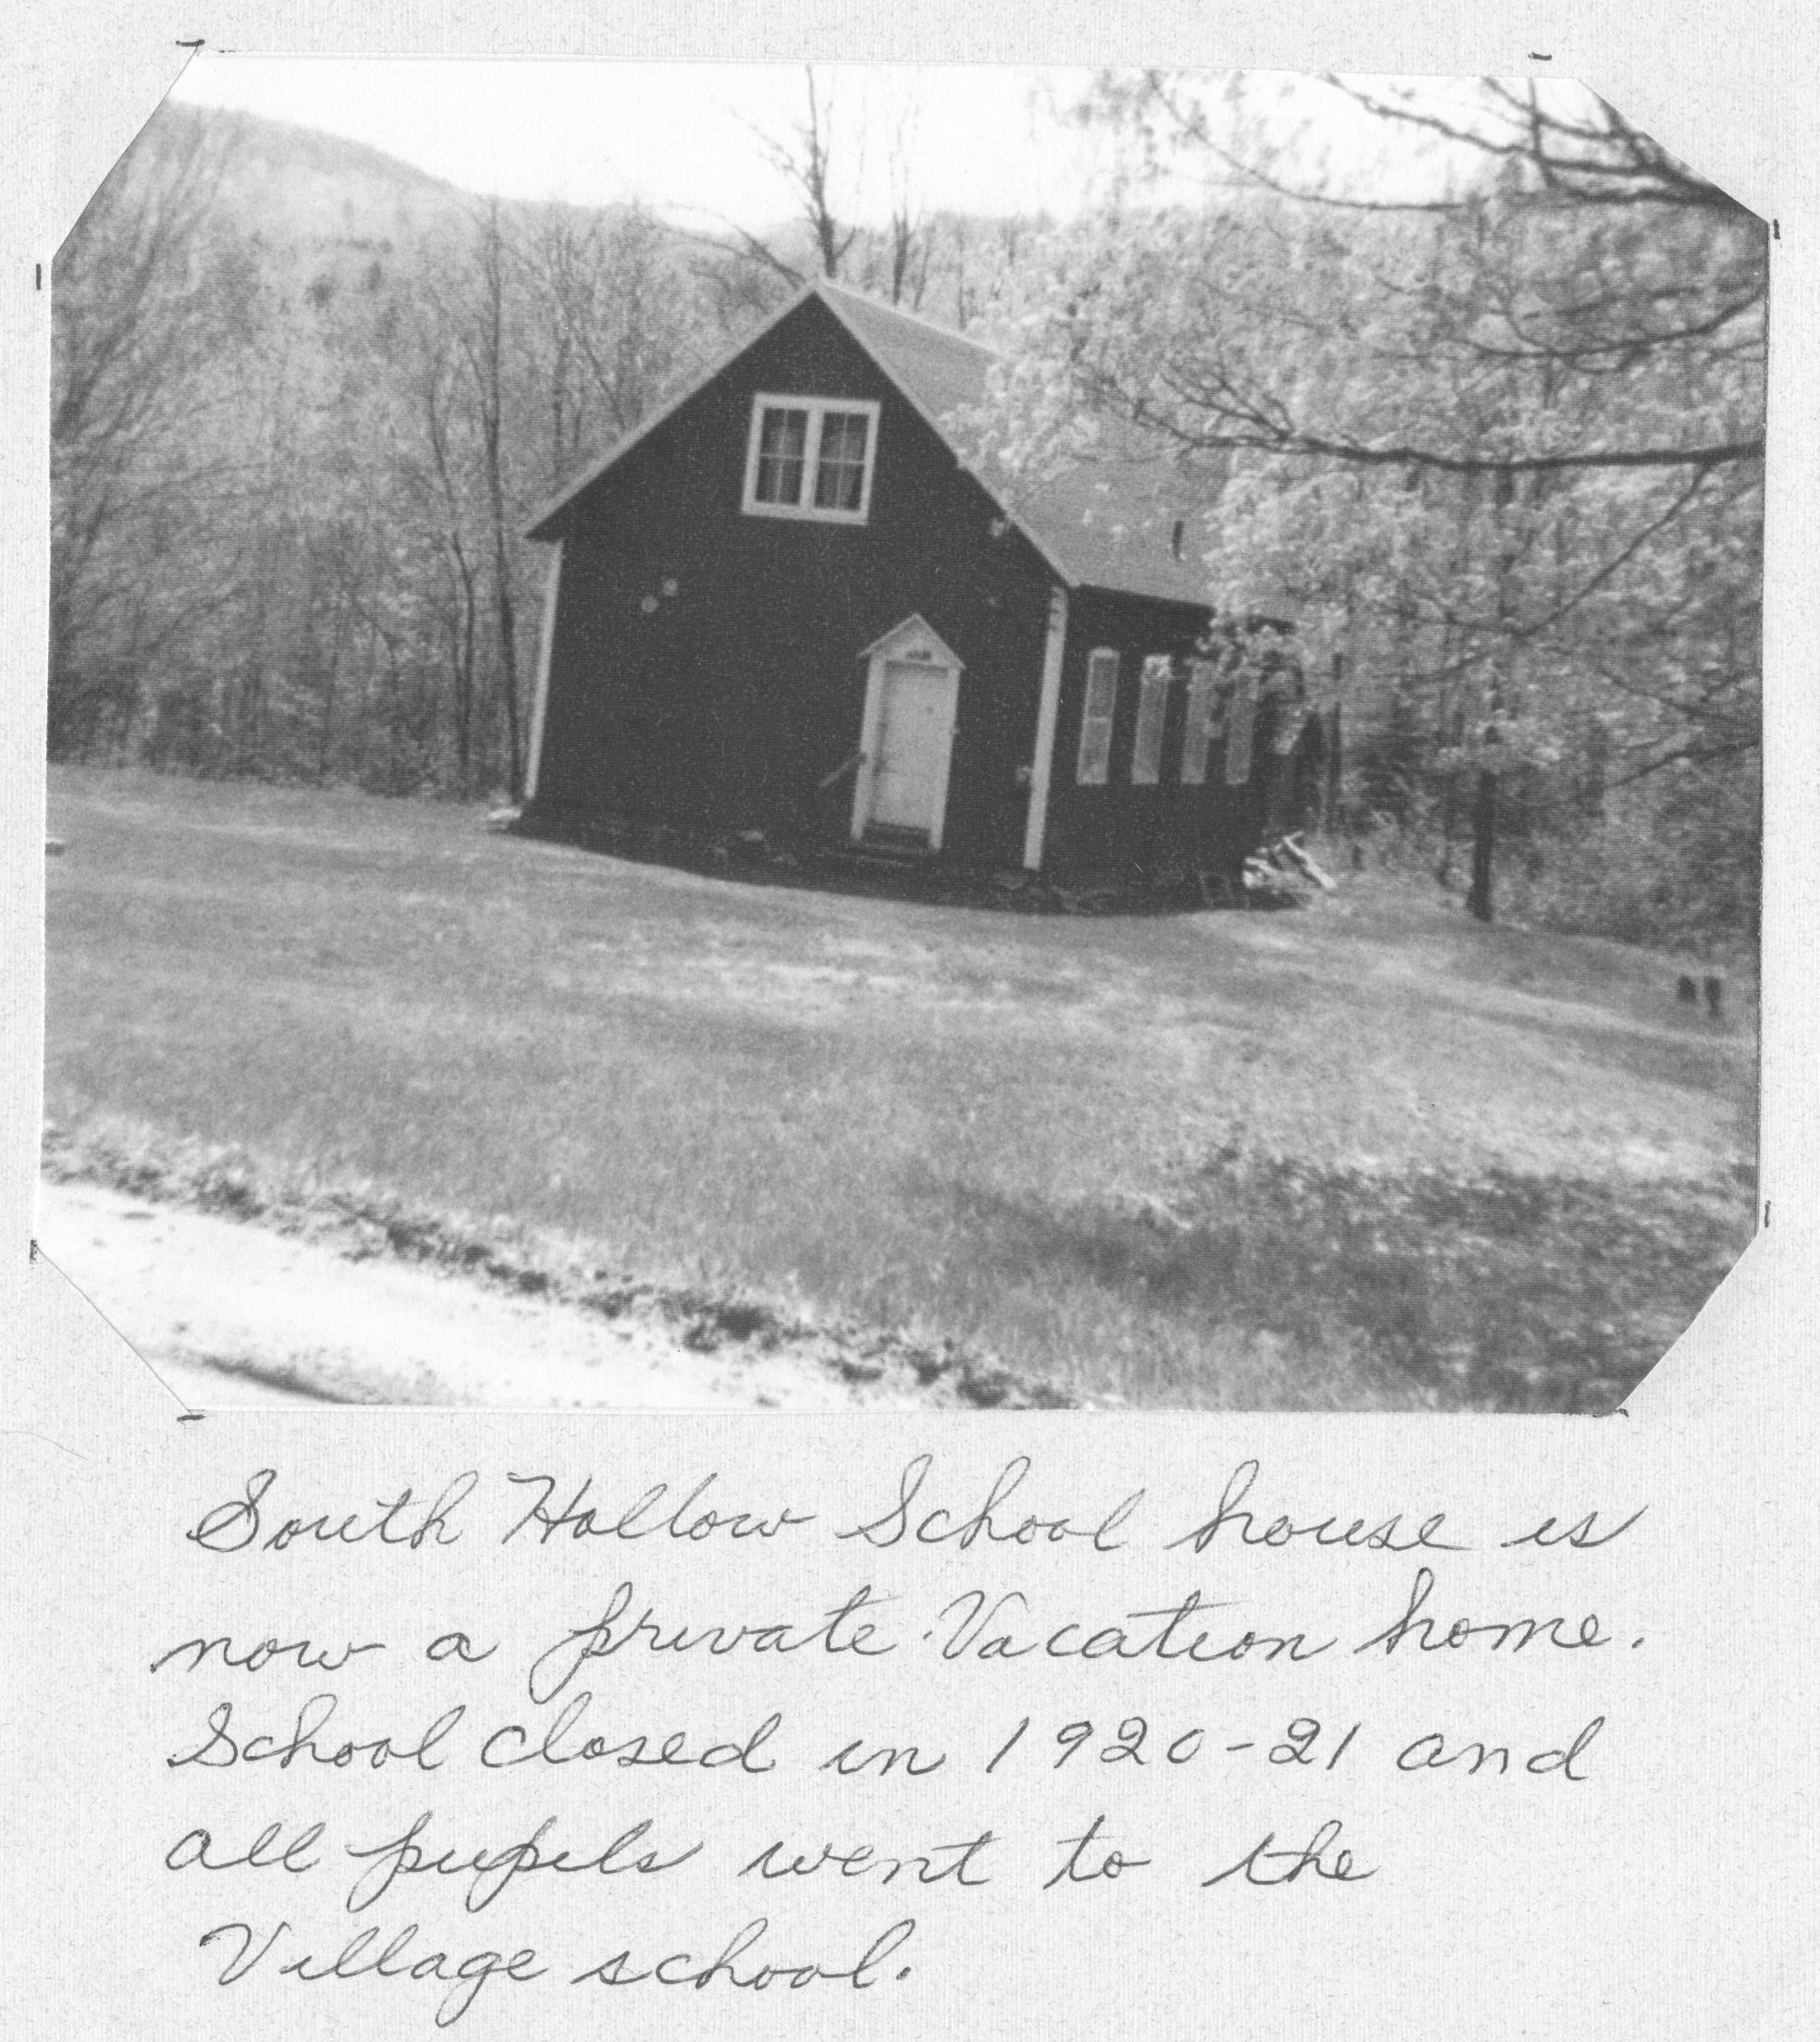 South Hollow School house is
now a private Vacation home.
School closed in 1920-21 and
all pupils went to the
Village school.